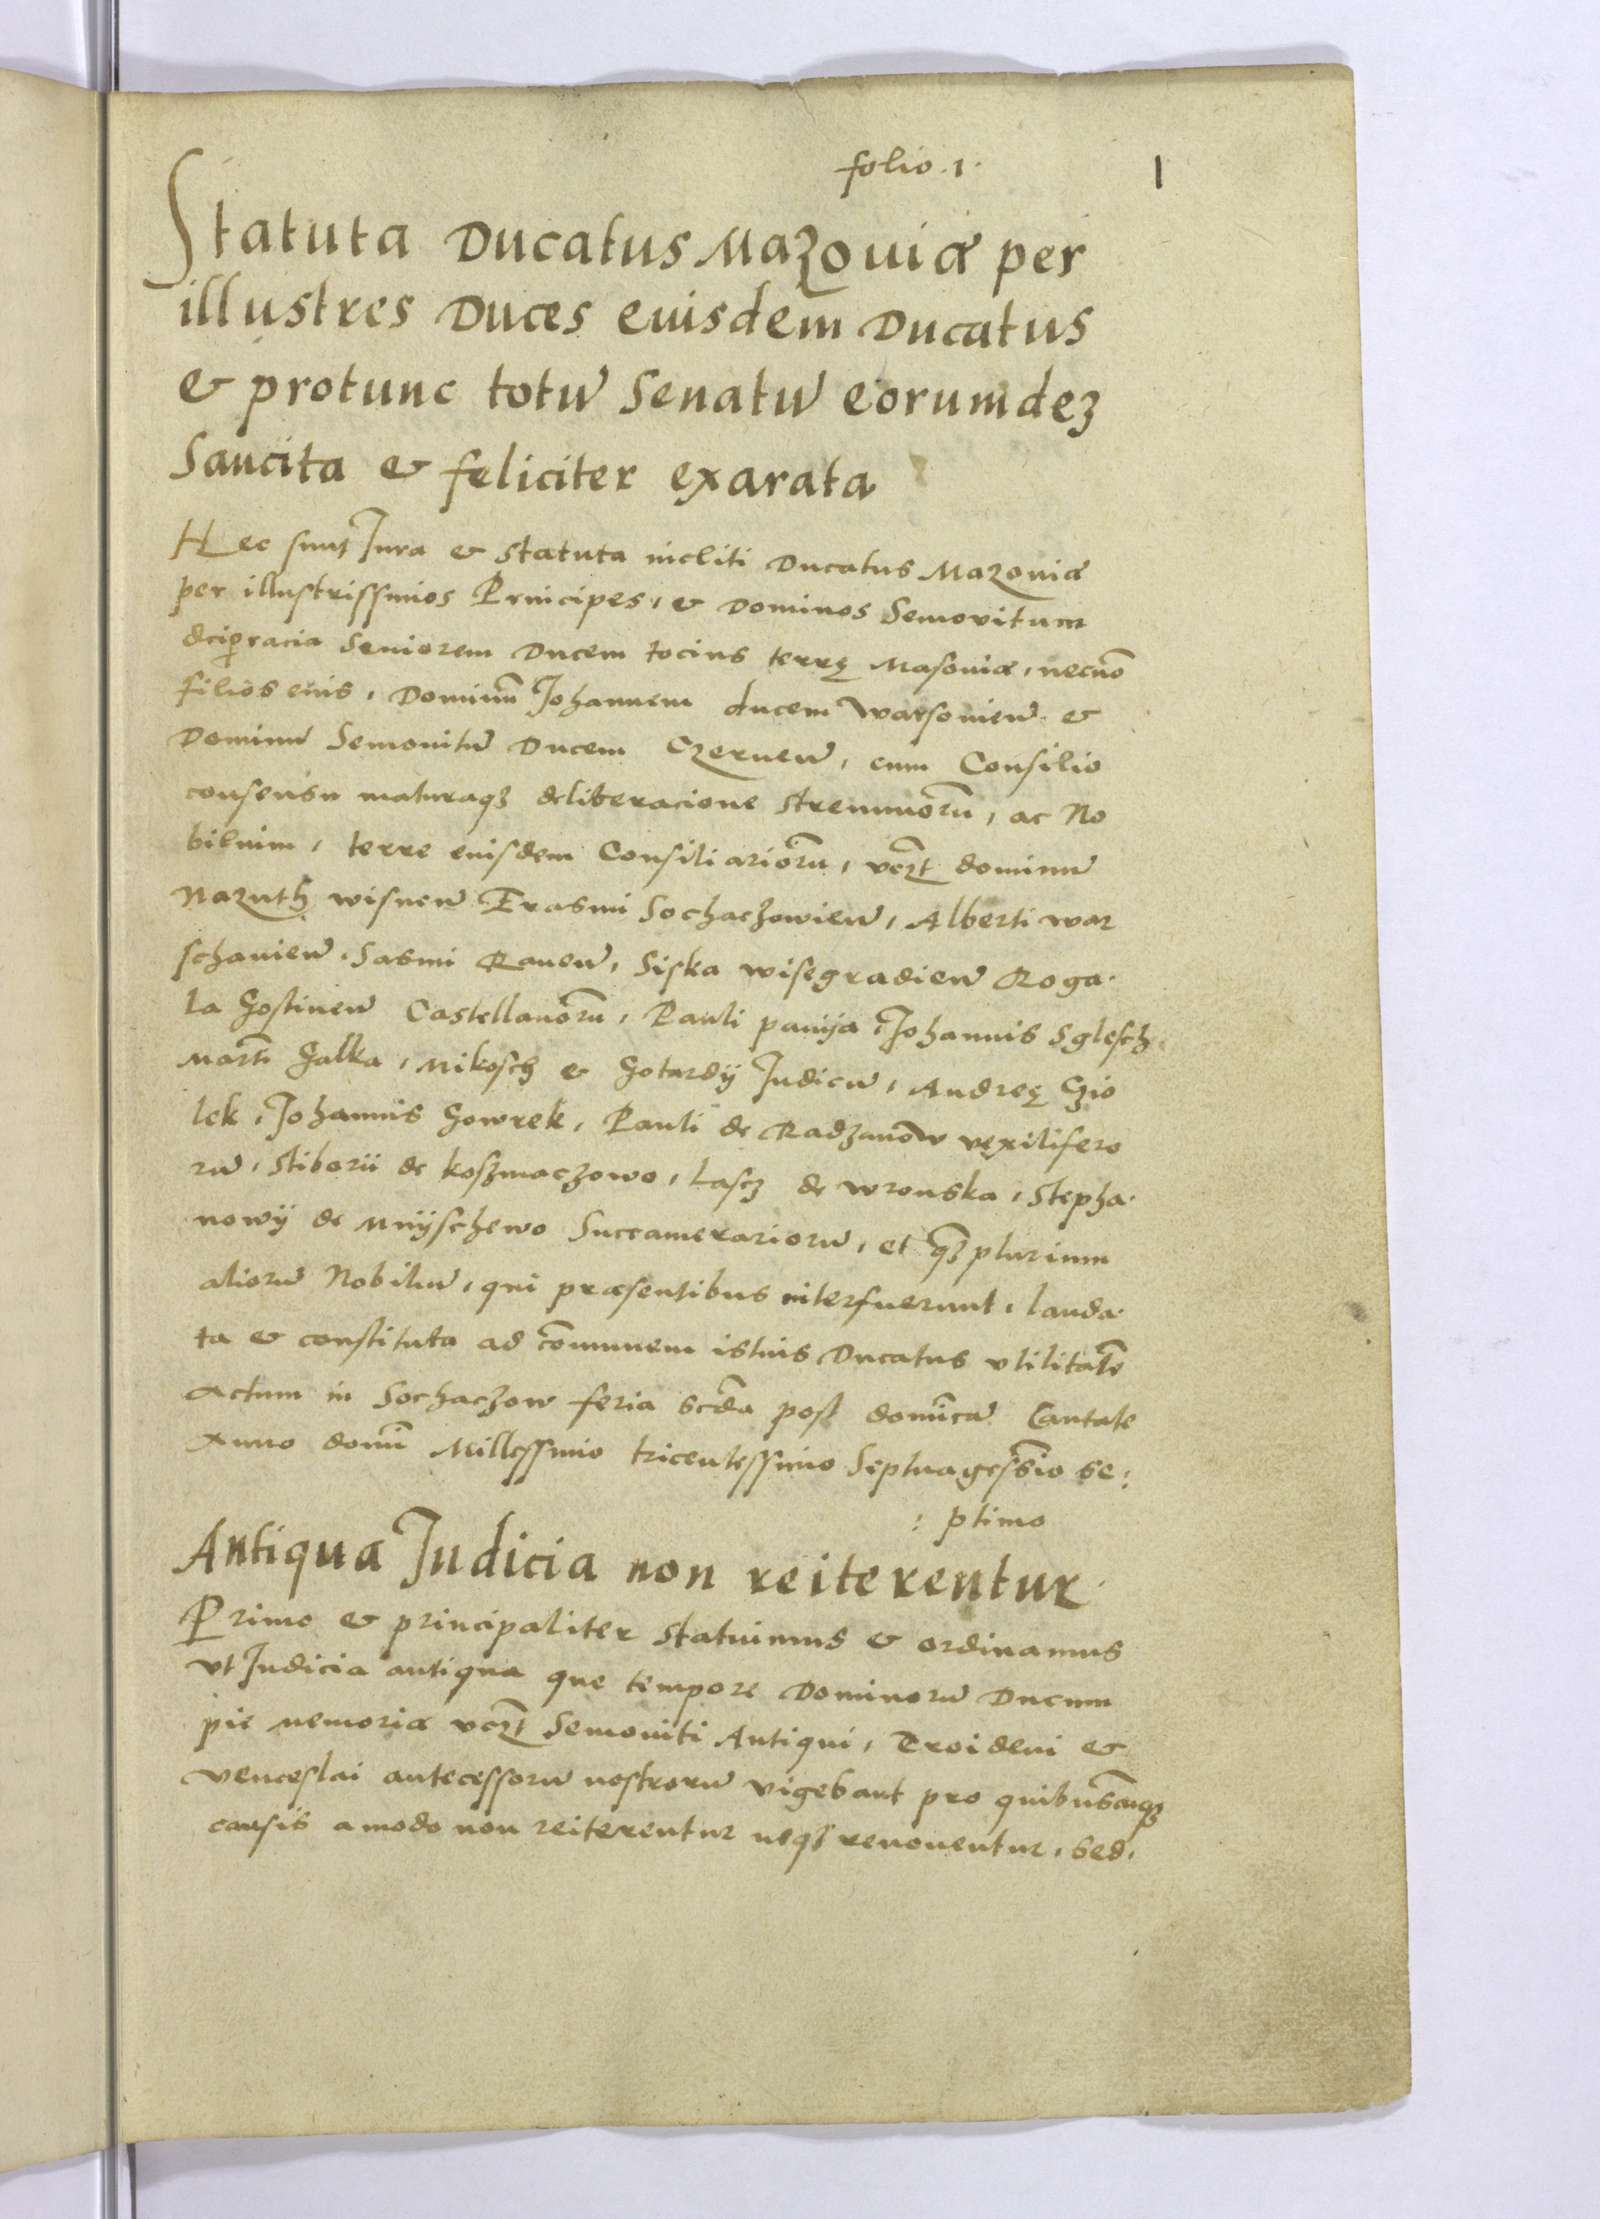 folio .1.
1
Statuta Ducatus Mazouiæ per
illustres Duces euisdem Ducatus
& protunc totũ Senatũ eorumdeʒ
Sancita & feliciter exarata
Hec sunt Jura & statuta incliti Ducatus Mazouiæ
per illustrissimos Principes, & Dominos Semovitum
dei gracia Seniorem Ducem tocius terrę Masouiæ, necnō
filios eius, Dominū Johannem ducem Warsouieñ. &
Dominũ Semouitũ Ducem Czerneñ, cum Consilio
consensu maturaqʒ deliberacione strennuorũ, ac No
bilium, terre euisdem Consiliariorũ, vcꝫt dominũ
Nazuth wisneñ Erasmi Sochaczowieñ, Alberti war
schauieñ. Sasmi Raueñ, Siska wisegradieñ Roga.
la Gostineñ Castellanorũ, Pauli pauija, Johannis Sglesch
Marti Galka, Mikosch & Gotardij Judicũ, Andreę Czio
lek, Johannis Gowrek, Pauli de Radzanow vexilifero
rũ, Stiborii de koszmaczowo, Lascz de wronska, Stepha.
nowij de Mnijschewo Succamerariorũ, et qʒ plurium
aliorũ Nobiliũ, qui præsentibus interfuerunt, lauda.
ta & constituta ad cōmunem istius Ducatus vtilitatē
Actum in Sochaczow feria scd̄a post domīcã Cantate
Anno domī Millessimo tricentessimo Septuagessīo se:
: ptimo
Antiqua Judicia non reiterentur.
Primo & principaliter statuimus & ordinamus
vt Judicia antiqua que tempore Dominorũ Ducum
pie memoriæ vcꝫt Semouiti Antiqui, Troideni &
venceslai antecessorũ nostrorũ vigebant pro quibuscūqʒ
causis amodo non reiterentur neqʒ renouentur, sed,